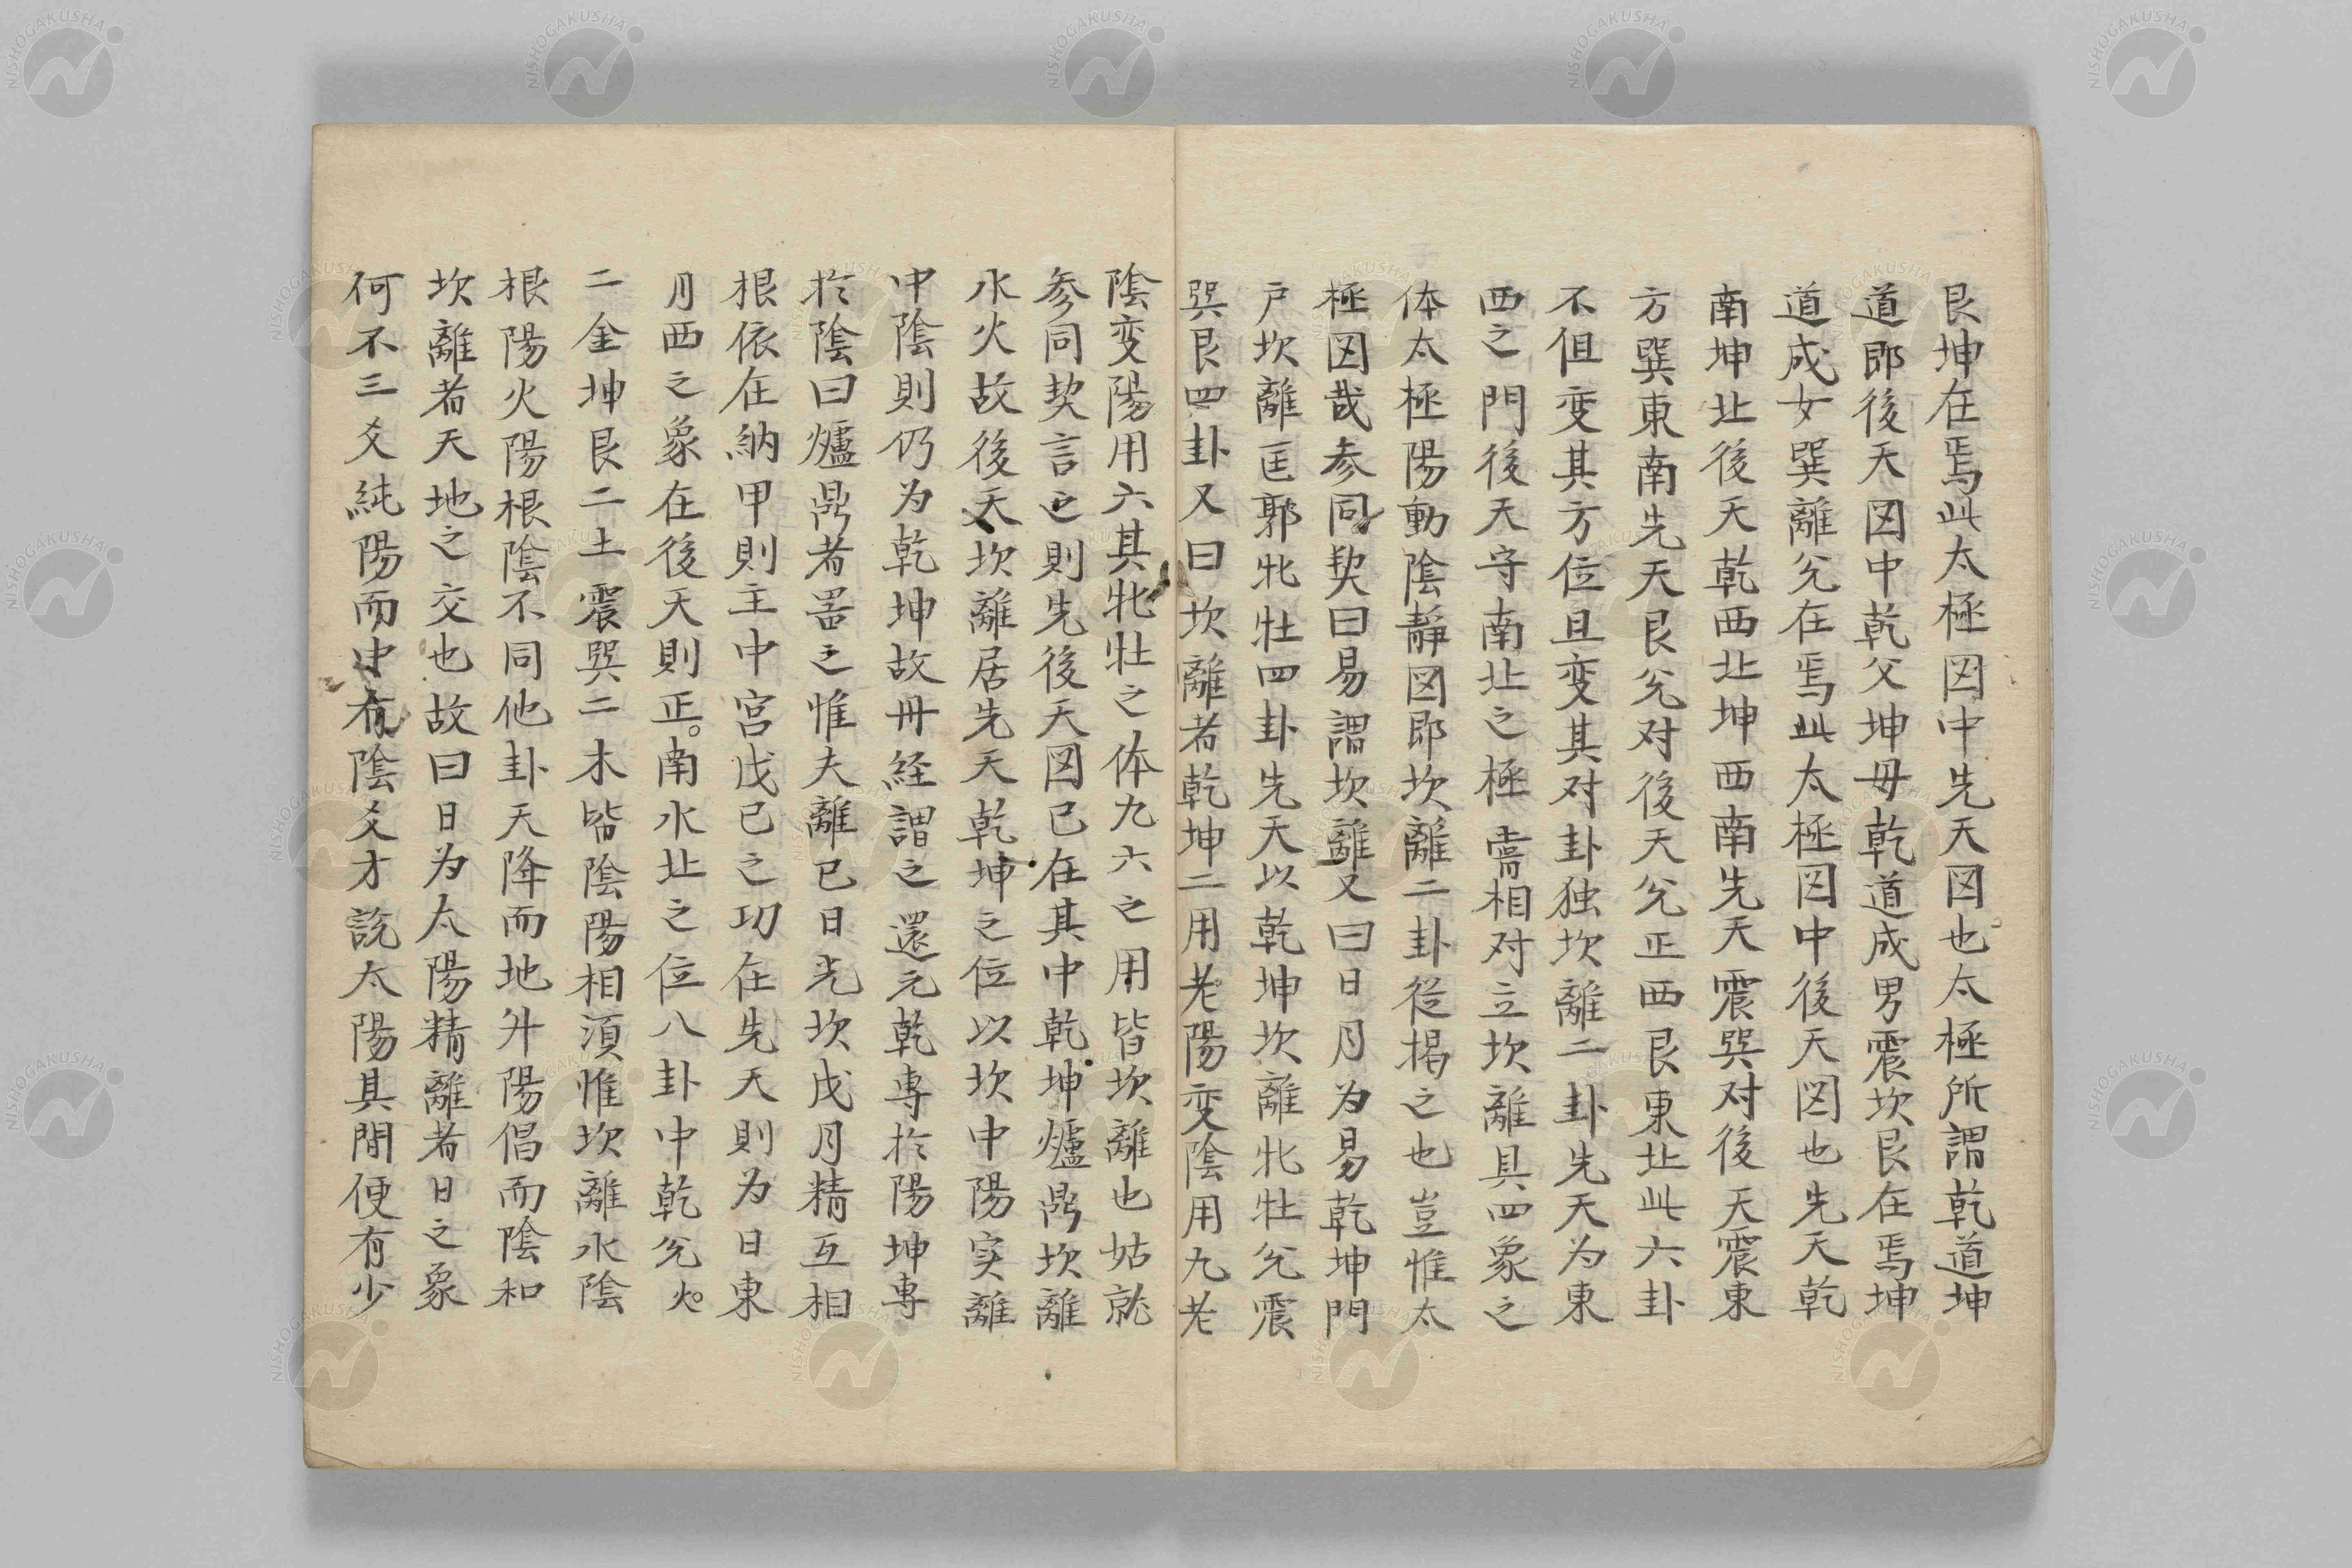 艮坤在焉此太極図中先天図也太極所謂乾道坤
道即後天図中乾父坤毋乾道成男震坎艮在焉坤
道成女巽離兊在焉此太極図中後天図也先天乾
南坤北後天乾西北坤西南先天震巽对後天震東
方巽東南先天艮兊对後天兊正西艮東北此六卦
不但变其方位且变其对卦独坎離二卦先天为東
西之門後天守南北之極需相对立坎離具四象之
体太極陽動陰靜図即坎離二卦從揭之也豈惟太
極図哉参同契曰易謂坎離又曰日月为易乾坤門
戸坎離匡郭牝牡四卦先天以乾坤坎離牝牡兊震
巽艮四卦又曰坎離者乾坤二用老陽变陰用九老
陰变陽用六其牝牡之体九六之用皆坎離也姑就
参同契言之則先後天図已在其中乾坤爐鼎坎離
水火故後天坎離居先天乾坤之位以坎中陽实離
中陰則仍为乾坤故丹経謂之還元乾専於陽坤専
於陰曰爐鼎者噐之惟夫離已日光坎戊月精互相
根依在納甲則主中宮戊已之功在先天則为日東
月西之象在後天則正南水北之位八卦中乾兊火
二金坤艮二土震巽二木皆陰陽相湏惟坎離水陰
根陽火陽根陰不同他卦天降而地升陽倡而陰和
坎離者天地之交也故曰日为太陽精離者日之象
何不三爻純陽而中有陰爻才説太陽具間便有少
NISHOGAKUSHA